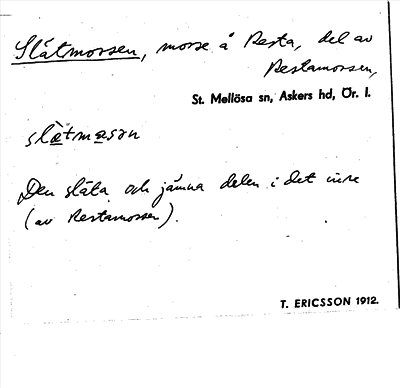 Slätmossen, mosse å Resta, del av
Restamossen,
St. Mellösa sn, Askers hd, Ör. l.
slätmosən
Den släta och jämna delen i det inre
(av Restamossen).
T. ERICSSON 1912.